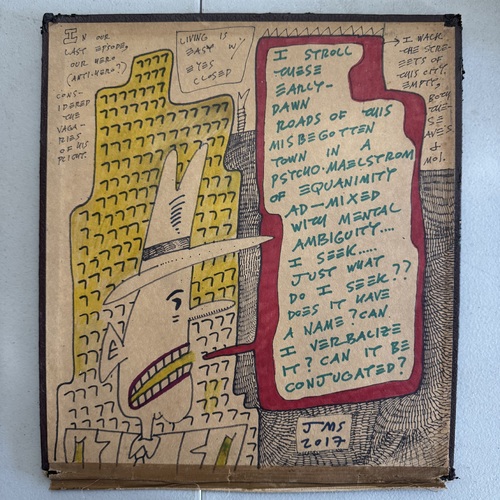 IN OUR
LAST EPISODE,
OUR HERO?
(ANTI-HERO?)
CONS-
IDERED
THE
VAGA-
RIES
OF HIS
PLIGHT.
LIVING IS
EASY W/
EYES
CLOSED
I STROLL
THESE
EARLY-
DAWN
ROADS OF THIS
MISBEGOTTEN
TOWN IN A
PSYCHO-MAELSTROM
OF EQUANIMITY
AD-MIXED
WITH MENTAL
AMBIGUITY....
I SEEK.....
JUST WHAT
DO I SEEK??
DOES IT HAVE
A NAME? CAN
I VERBALIZE
IT? CAN IT BE
CONJUGATED?
I WALK
THE STRE-
EETS OF
THIS CITY,
EMPTY,
BOTH
THE-
SE
AVES.
& MOI.
JMS
2017